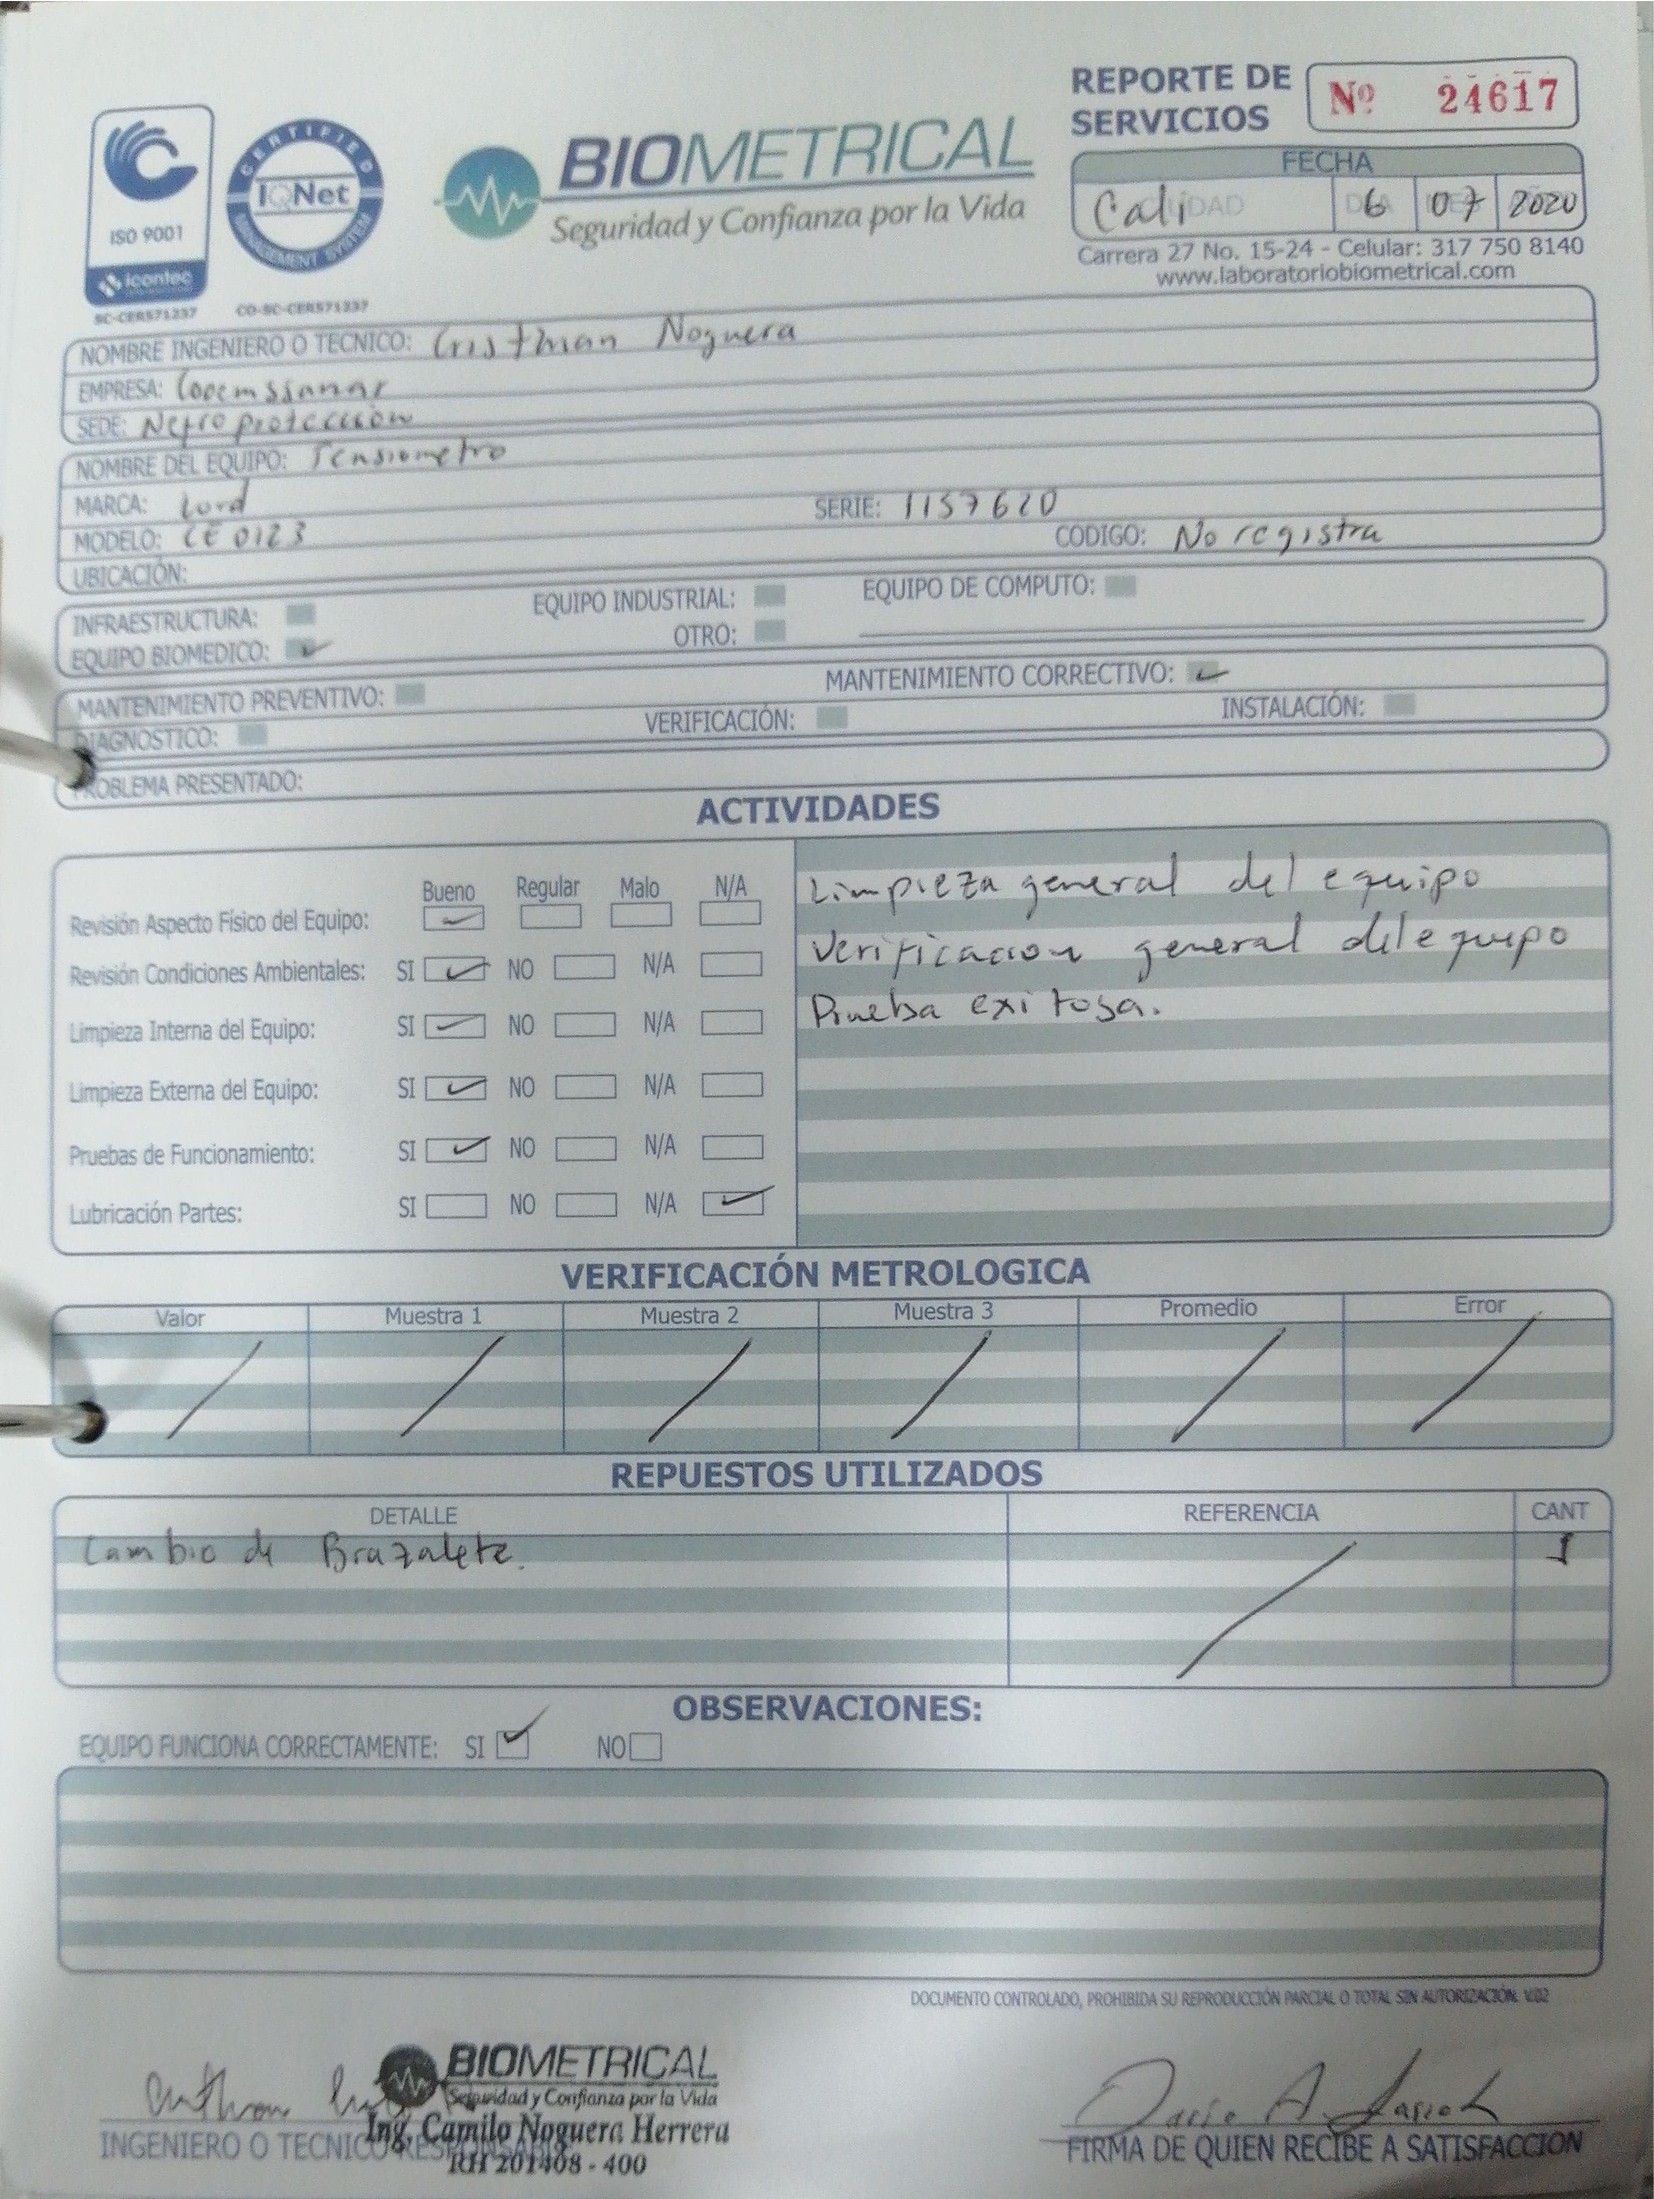 REPORTE DE SERVICIOS Nº 24617
ISO 9001
icontec
SC-CER571237
CERTIFIED
IQNet
MANAGEMENT SYSTEM
CO-SC-CER571237
BIOMETRICAL
Seguridad y Confianza por la Vida
FECHA
Cali 6 07 2020
Carrera 27 No. 15-24 - Celular: 317 750 8140
www.laboratoriobiometrical.com
NOMBRE INGENIERO O TECNICO: Cristhian Noguera
EMPRESA: Coopemssanar
SEDE: Nefroproteccion
NOMBRE DEL EQUIPO: Tensiometro
MARCA: Lord SERIE: 1157620
MODELO: CE 0123 CODIGO: No registra
UBICACIÓN:
INFRAESTRUCTURA: EQUIPO INDUSTRIAL: EQUIPO DE COMPUTO:
EQUIPO BIOMEDICO: ✓ OTRO:
MANTENIMIENTO PREVENTIVO: MANTENIMIENTO CORRECTIVO: ✓
DIAGNOSTICO: VERIFICACIÓN: INSTALACIÓN:
PROBLEMA PRESENTADO:
ACTIVIDADES
Bueno Regular Malo N/A
Revisión Aspecto Físico del Equipo: ✓
Revisión Condiciones Ambientales: SI ✓ NO N/A
Limpieza Interna del Equipo: SI ✓ NO N/A
Limpieza Externa del Equipo: SI ✓ NO N/A
Pruebas de Funcionamiento: SI ✓ NO N/A
Lubricación Partes: SI NO N/A ✓
Limpieza general del equipo
Verificacion general del equipo
Prueba exitosa.
VERIFICACIÓN METROLOGICA
Valor Muestra 1 Muestra 2 Muestra 3 Promedio Error
/ / / / / /
REPUESTOS UTILIZADOS
DETALLE REFERENCIA CANT
Cambio de Brazalete. / 1
OBSERVACIONES:
EQUIPO FUNCIONA CORRECTAMENTE: SI ✓ NO
DOCUMENTO CONTROLADO, PROHIBIDA SU REPRODUCCIÓN PARCIAL O TOTAL SIN AUTORIZACIÓN. V.02
BIOMETRICAL
Seguridad y Confianza por la Vida
Ing. Camilo Noguera Herrera
RH 201408 - 400
INGENIERO O TECNICO RESPONSABLE
FIRMA DE QUIEN RECIBE A SATISFACCION